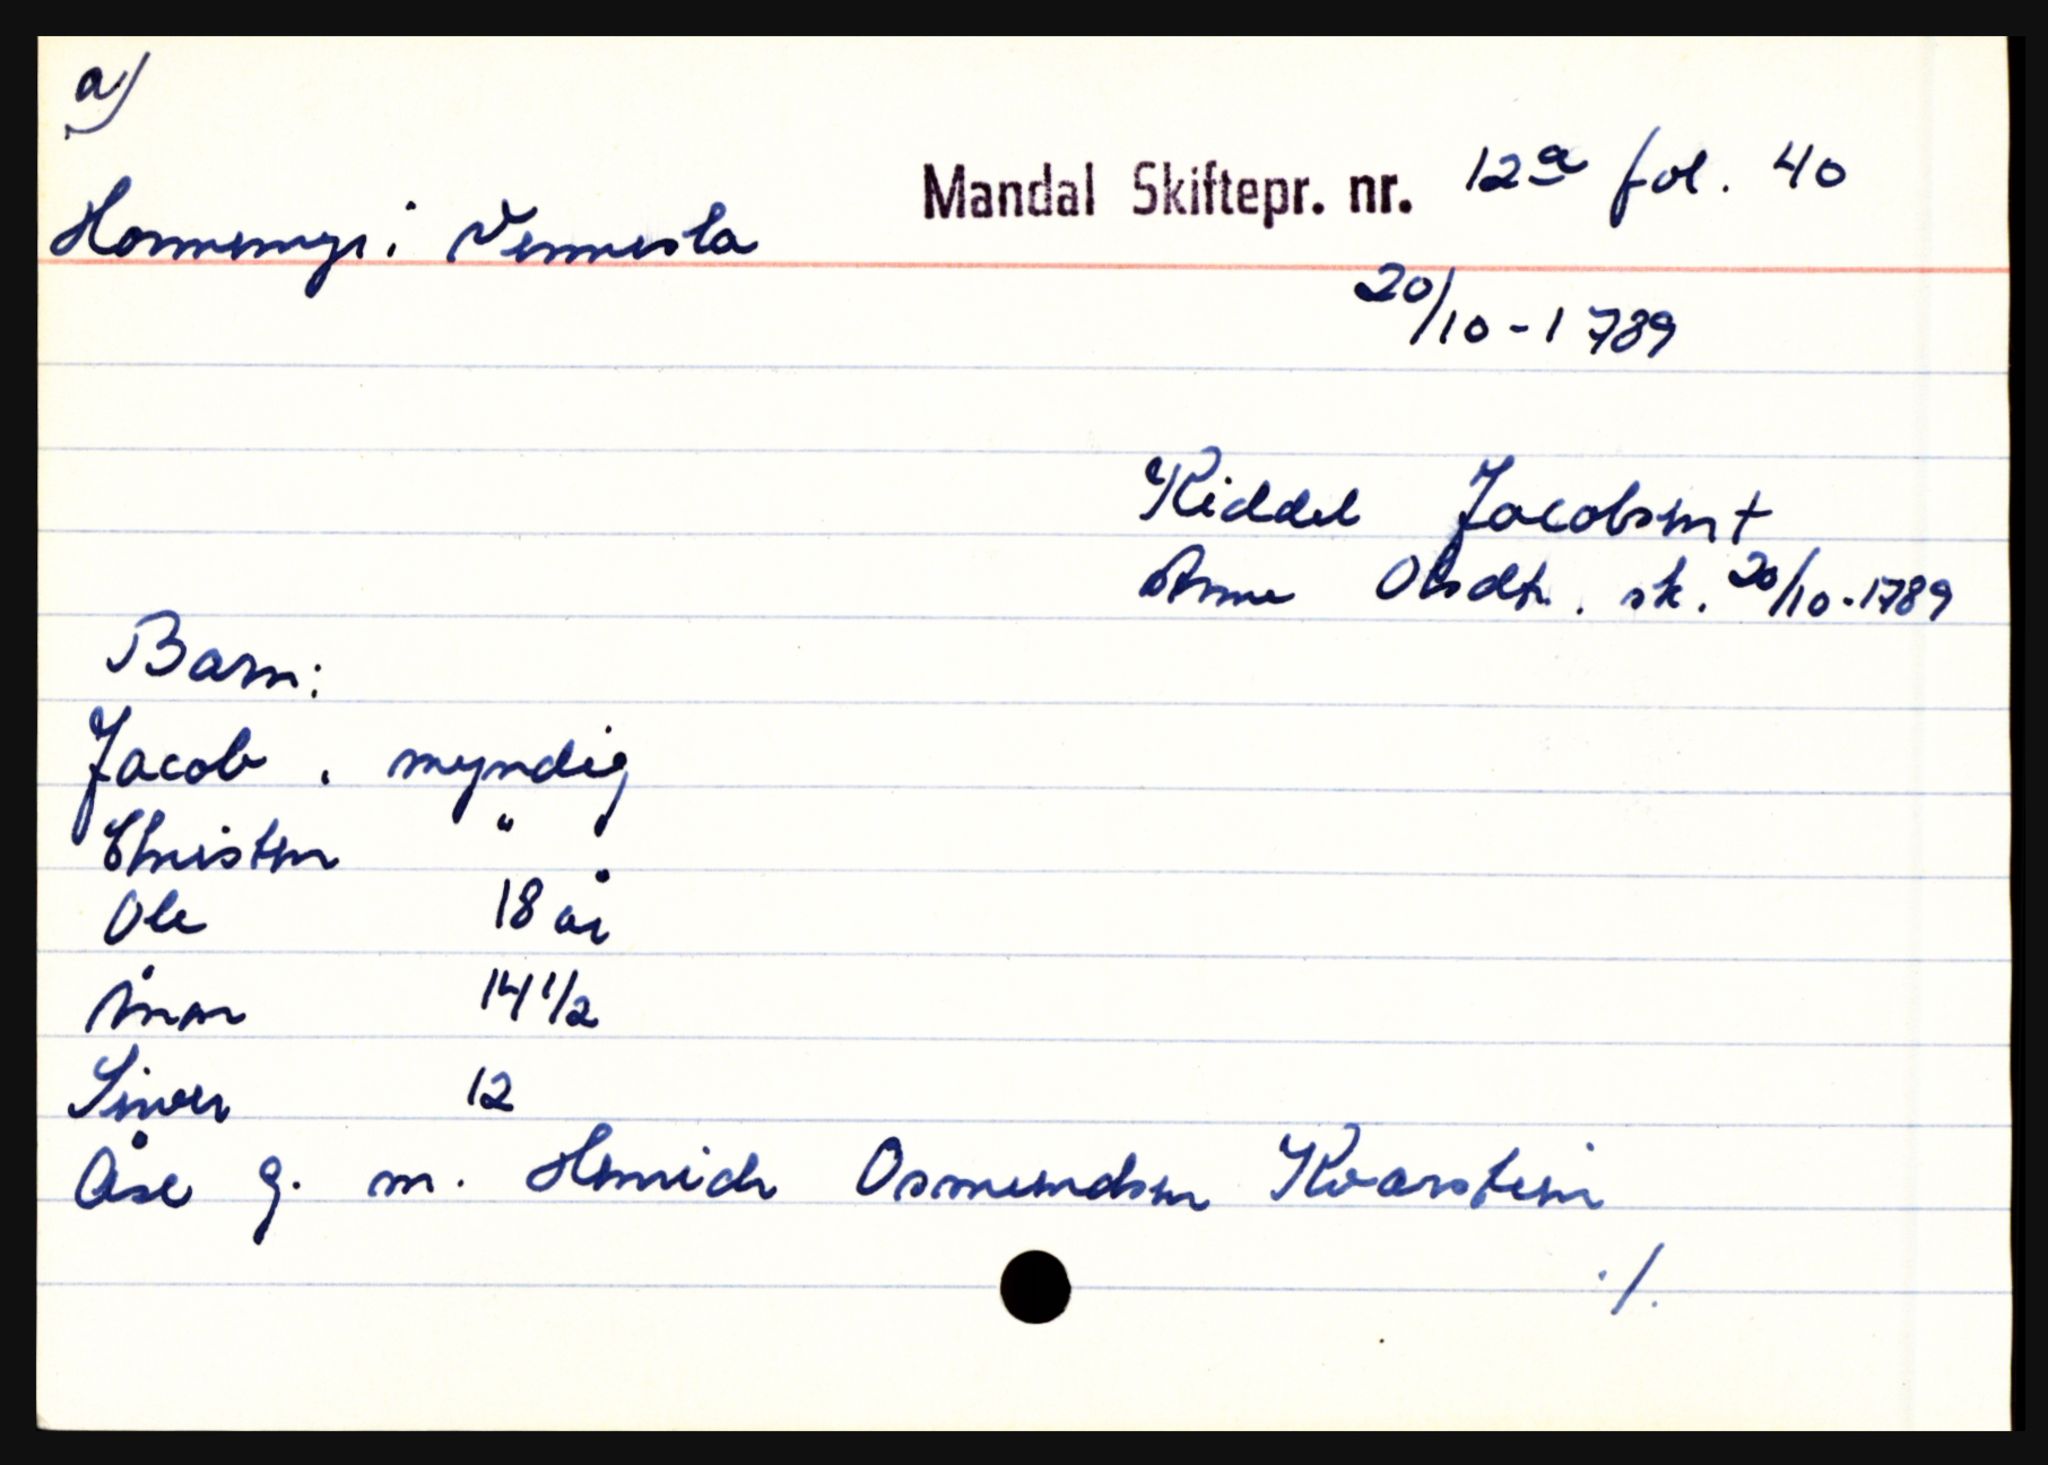 a)
Mandal Skiftepr. nr. 12a fol. 40
Hommemyr i Vennesla
20/10-1789
Kiddel Jacobsen +
Anne Olsdtr. sk. 20/10-1789
Barn:
Jacob, myndig
Christen "
Ole 18 år
14 1/2
Siver 12
Åse g. m. Henrich Osmundsen Kvarstein
./.